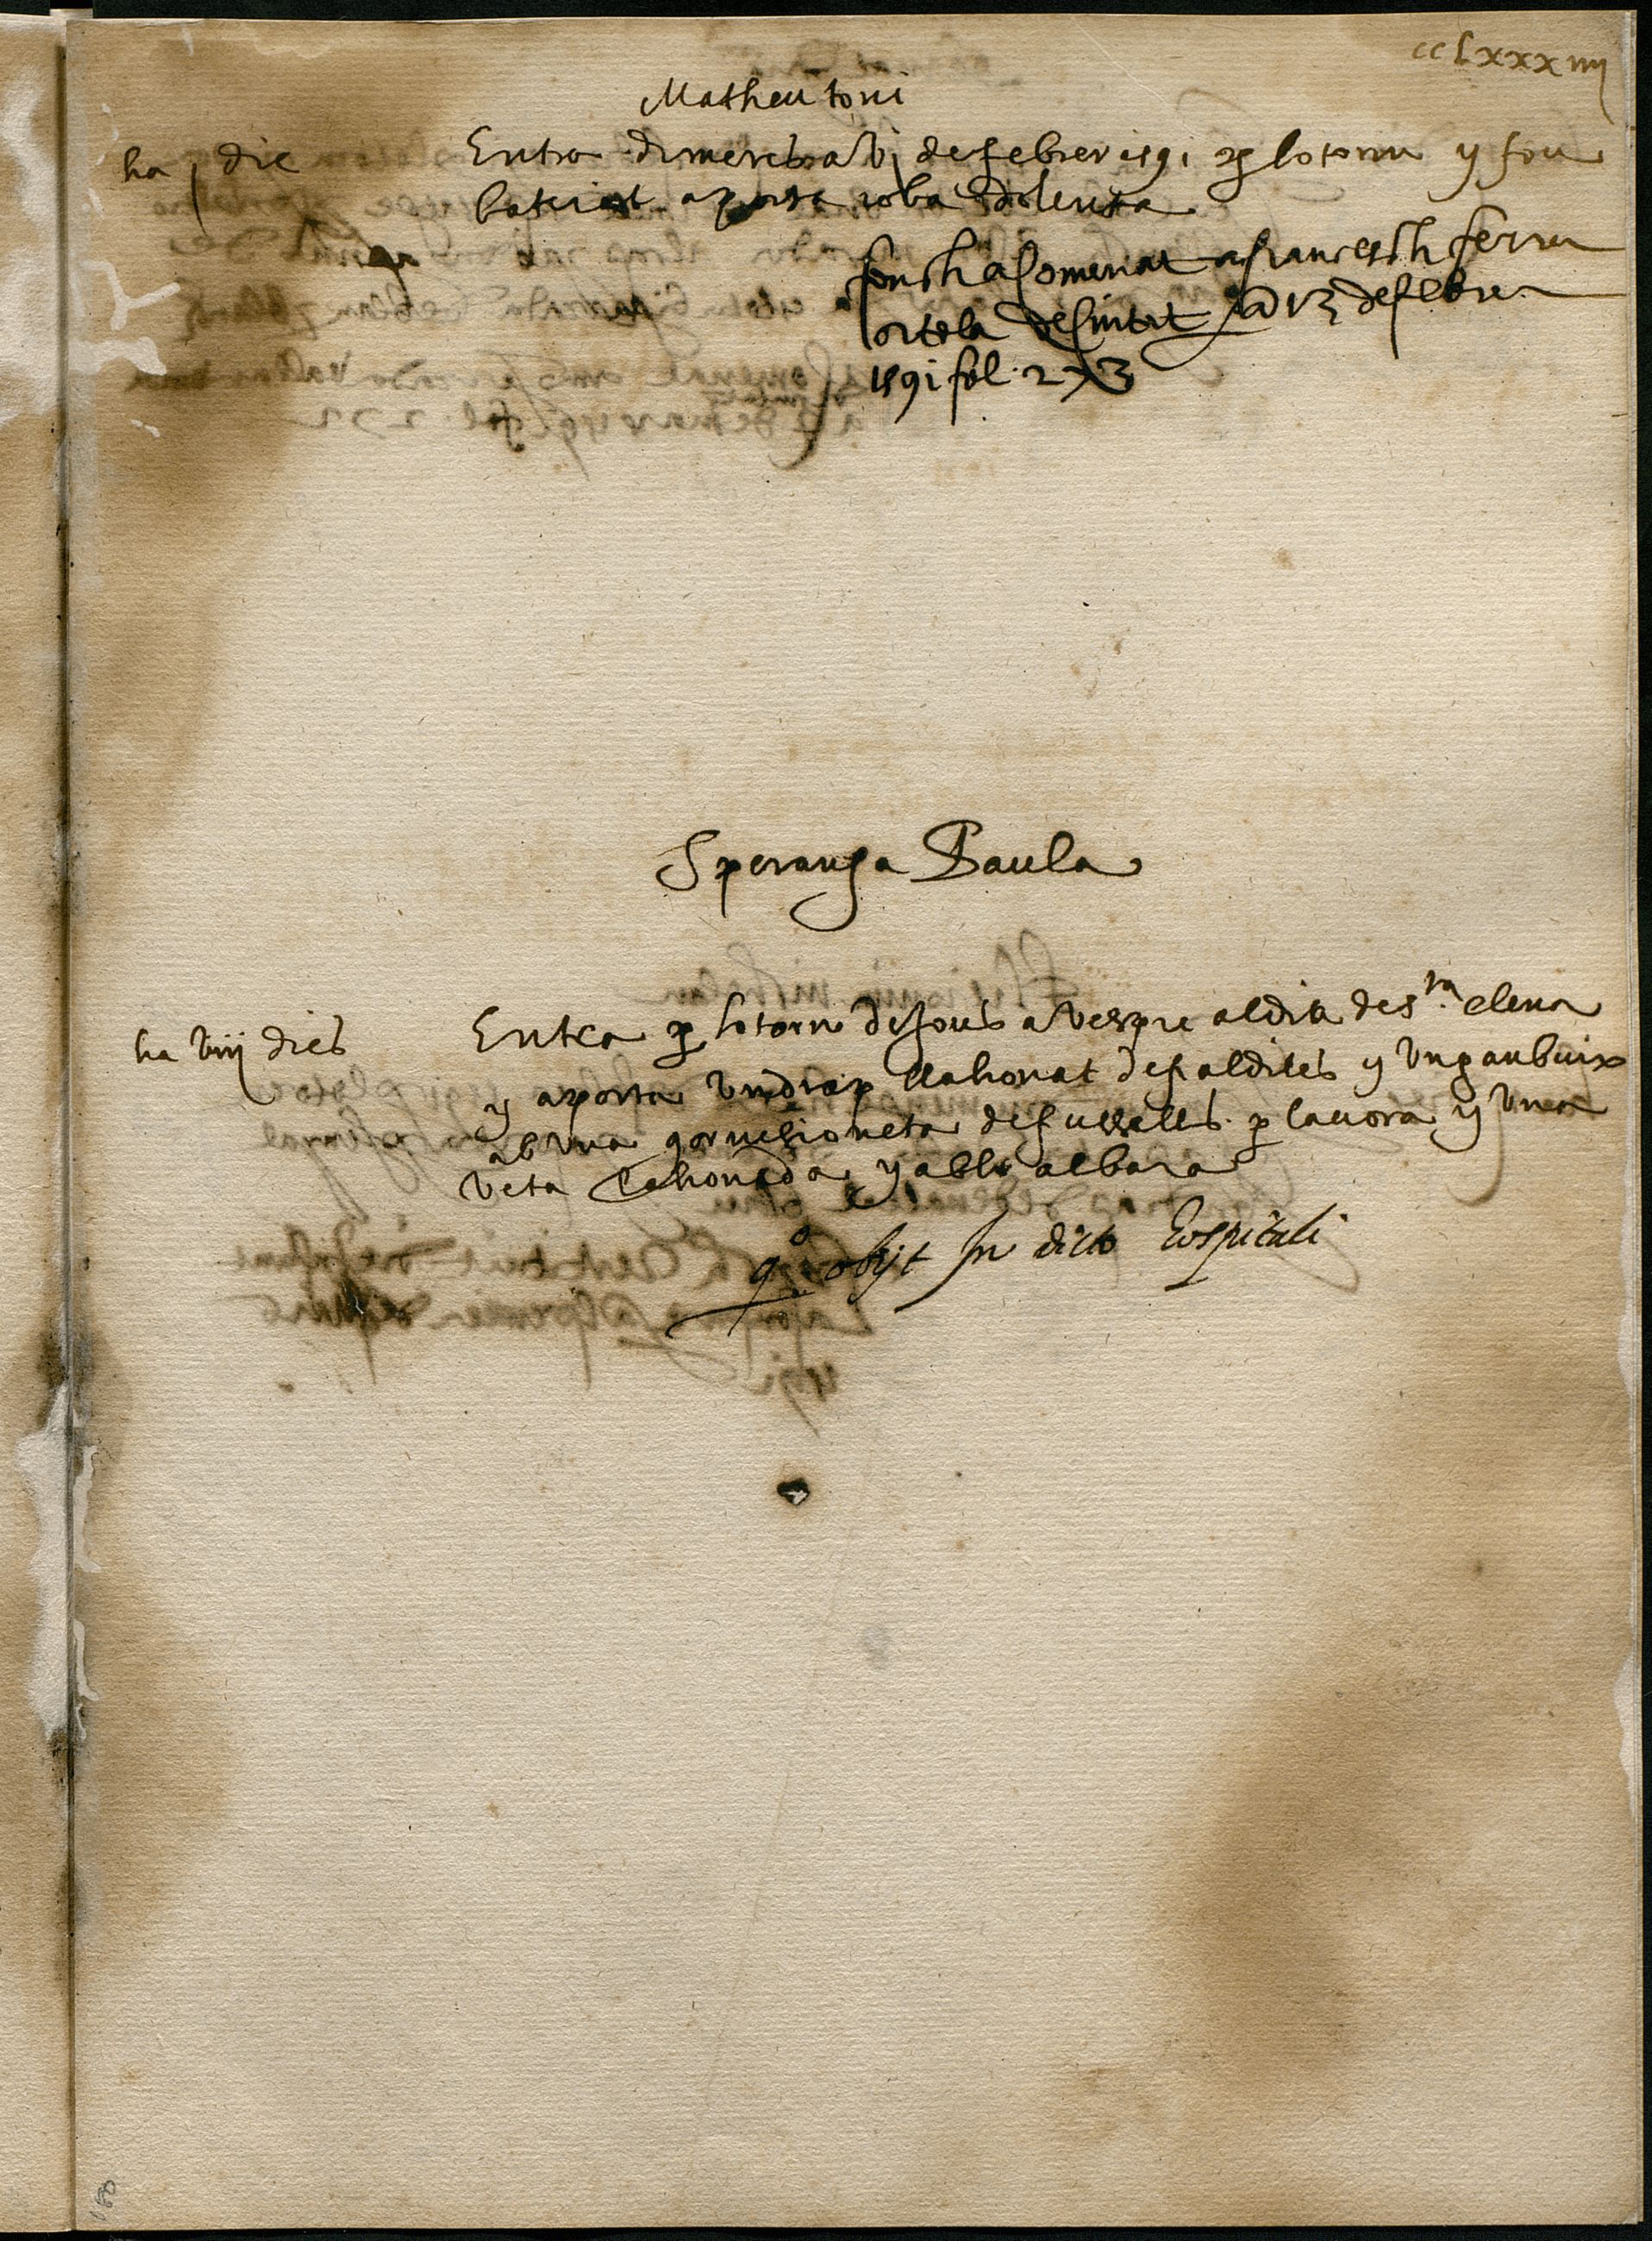 cclxxxiiij
Matheu toni
ha j die
Entra dimecres a vj de febrer 1591 per lo torn y fou
batejat aporta roba dolenta
fonch acomenat a francesch ferrer
ortola de ciutat a 13 de febrer
1591 fol. 273
Speransa Paula
ha viij dies
Entra per lo torn dijous a vespre al dia de sta elena
y aporta un drap llahonat de faldilles y un ganbuix
ab una guarnisioneta de fusellets per la vora y una
veta llahonada y ab lo albara
obijt in dicto hospitali